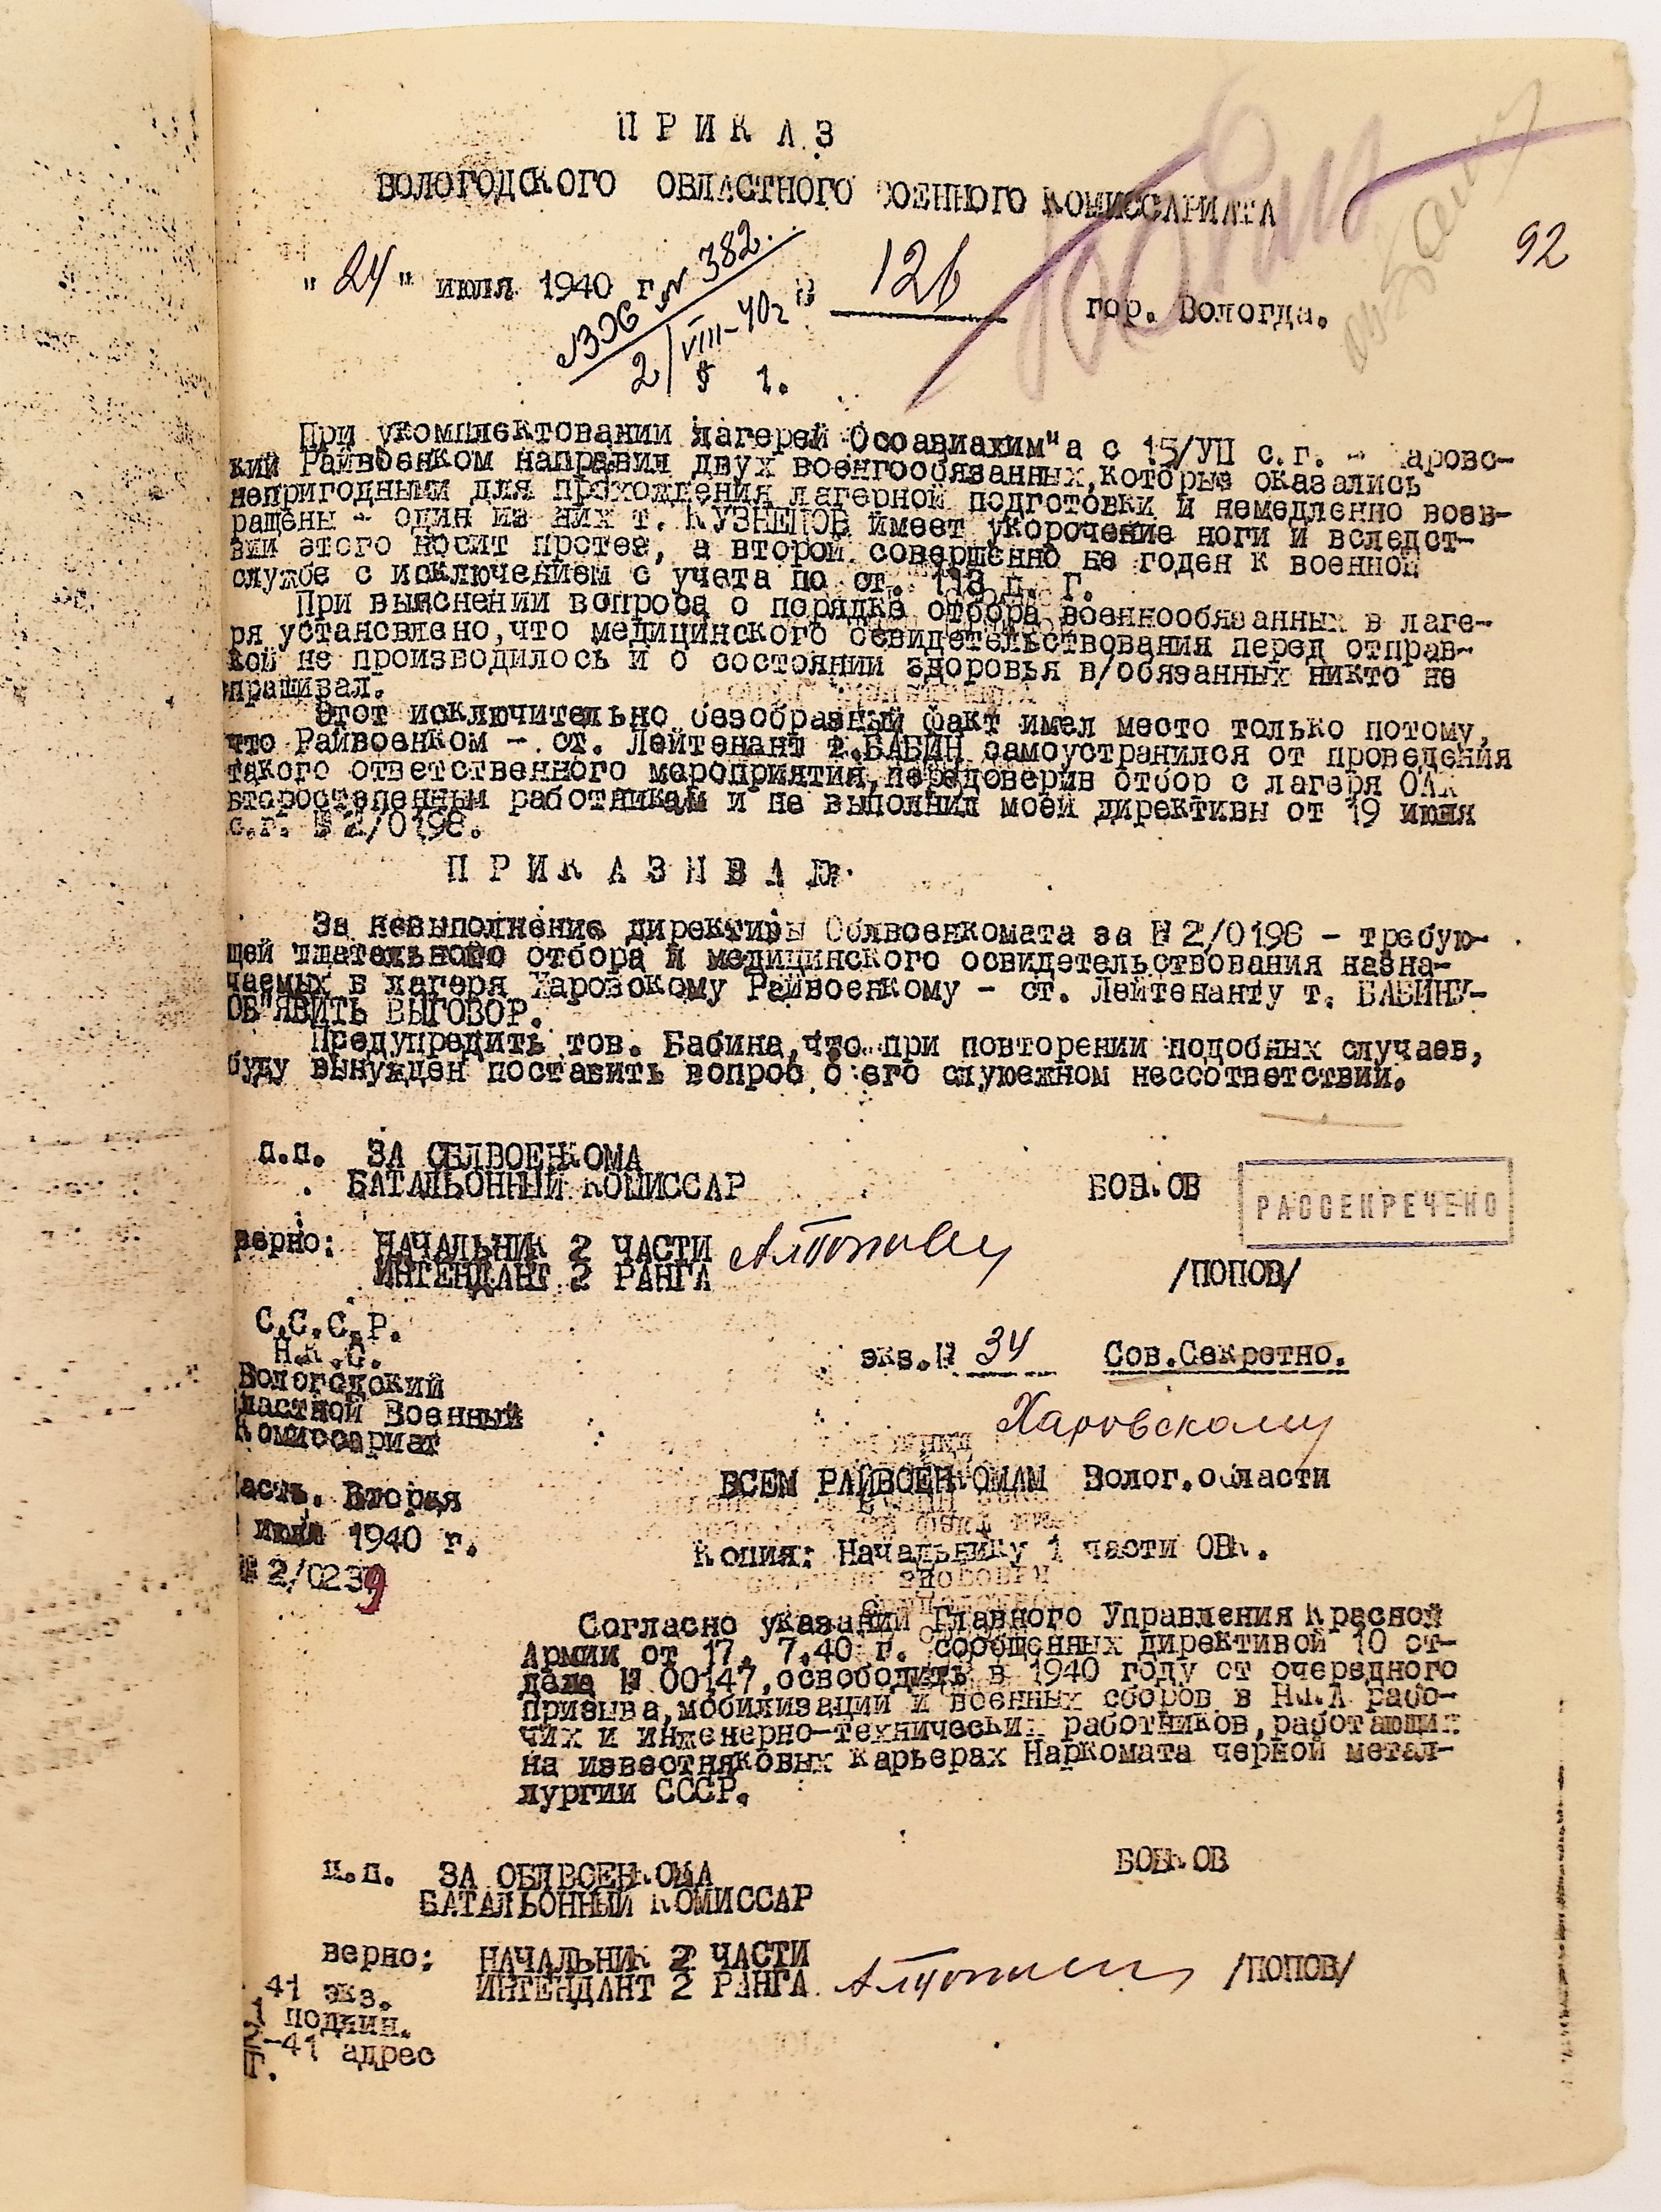 П Р И К А З
ВОЛОГОДСКОГО ОБЛАСТНОГО ВОЕННОГО КОМИССАРИАТА
92
"24" июля 1940 г. № 126 гор. Вологда.
№ 382
2/VIII-40г
§ 1.
При укомплектовании лагерей Осоавиахим"а с 15/УП с.г. - Харовс-
кий Райвоенком направил двух военгообязанных,которые оказались
непригодными для прохождения лагерной подготовки и немедленно возв-
ращены - один из них т. КУЗНЕЦОВ имеет укорочение ноги и вследст-
вии этого носит протез, а второй совершенно не годен к военной
службе с исключением с учета по ст. 113 п. Г.
При выяснении вопроса о порядке отбора военнообязанных в лаге-
ря установлено,что медицинского освидетельствования перед отправ-
кой не производилось и о состоянии здоровья в/обязанных никто не
спрашивал.
Этот исключительно безобразный факт имел место только потому,
что Райвоенком - ст. Лейтенант т.БАБИН самоустранился от проведения
такого ответственного мероприятия,передоверив отбор с лагеря ОАХ
второстепенным работникам и не выполнил моей директивы от 19 июля
с.г. № 2/0196.
П Р И К А З Ы В А Ю:
За невыполнение директивы Облвоенкомата за № 2/0196 - требую-
щей тщательного отбора и медицинского освидетельствования назна-
чаемых в лагеря Харовскому Райвоенкому - ст. Лейтенанту т. БАБИНУ-
ОБ"ЯВИТЬ ВЫГОВОР.
Предупредить тов. Бабина,что при повторении подобных случаев,
буду вынужден поставить вопрос о его служежном нессответствии.
п.п. ЗА ОБЛВОЕНКОМА
БАТАЛЬОННЫЙ КОМИССАР БОЙКОВ
РАССЕКРЕЧЕНО
верно: НАЧАЛЬНИК 2 ЧАСТИ
ИНТЕНДАНТ 2 РАНГА /ПОПОВ/
С.С.С.Р.
Н.К.О.
Вологодский
ластной Военный
Комиссариат
экз.№ 34 Сов.Секретно.
Харовскому
асть. Вторая
ВСЕМ РАЙВОЕНКОМАМ Волог.области
июля 1940 г.
№ 2/0239
Копия: Начальнику 1 части ОВК.
Согласно указаний Главного Управления Красной
Армии от 17. 7.40 г. сообщенных директивой 10 от-
дела № 00147,освободить в 1940 году от очередного
призыва,мобилизации и военных сборов в НКА рабо-
чих и инженерно-технических работников,работающих
на известняковых карьерах Наркомата черной метал-
лургии СССР.
п.п. ЗА ОБЛВОЕНКОМА БОЙКОВ
БАТАЛЬОННЫЙ КОМИССАР
верно: НАЧАЛЬНИК 2 ЧАСТИ
ИНТЕНДАНТ 2 РАНГА /ПОПОВ/
41 экз.
1 подлин.
2-41 адрес
Г.